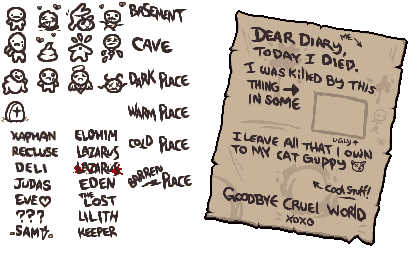 BASEMENT
CAVE
DARK PLACE
WARM PLACE
COLD PLACE
BARREN PLACE
XAPHAN
RECLUSE
DELI
JUDAS
EVE♡
???
SAMS
ELOHIM
LAZARUS
LAZARUS
EDEN
THE LOST
LILITH
KEEPER
DEAR DIARY,
ME
TODAY I DIED.
I WAS KILLED BY THIS
THING →
IN SOME
UGLY↑
I LEAVE ALL THAT I OWN
TO MY CAT GUPPY
↖ COOL STUFF!
GOODBYE CRUEL WORLD
XOXO